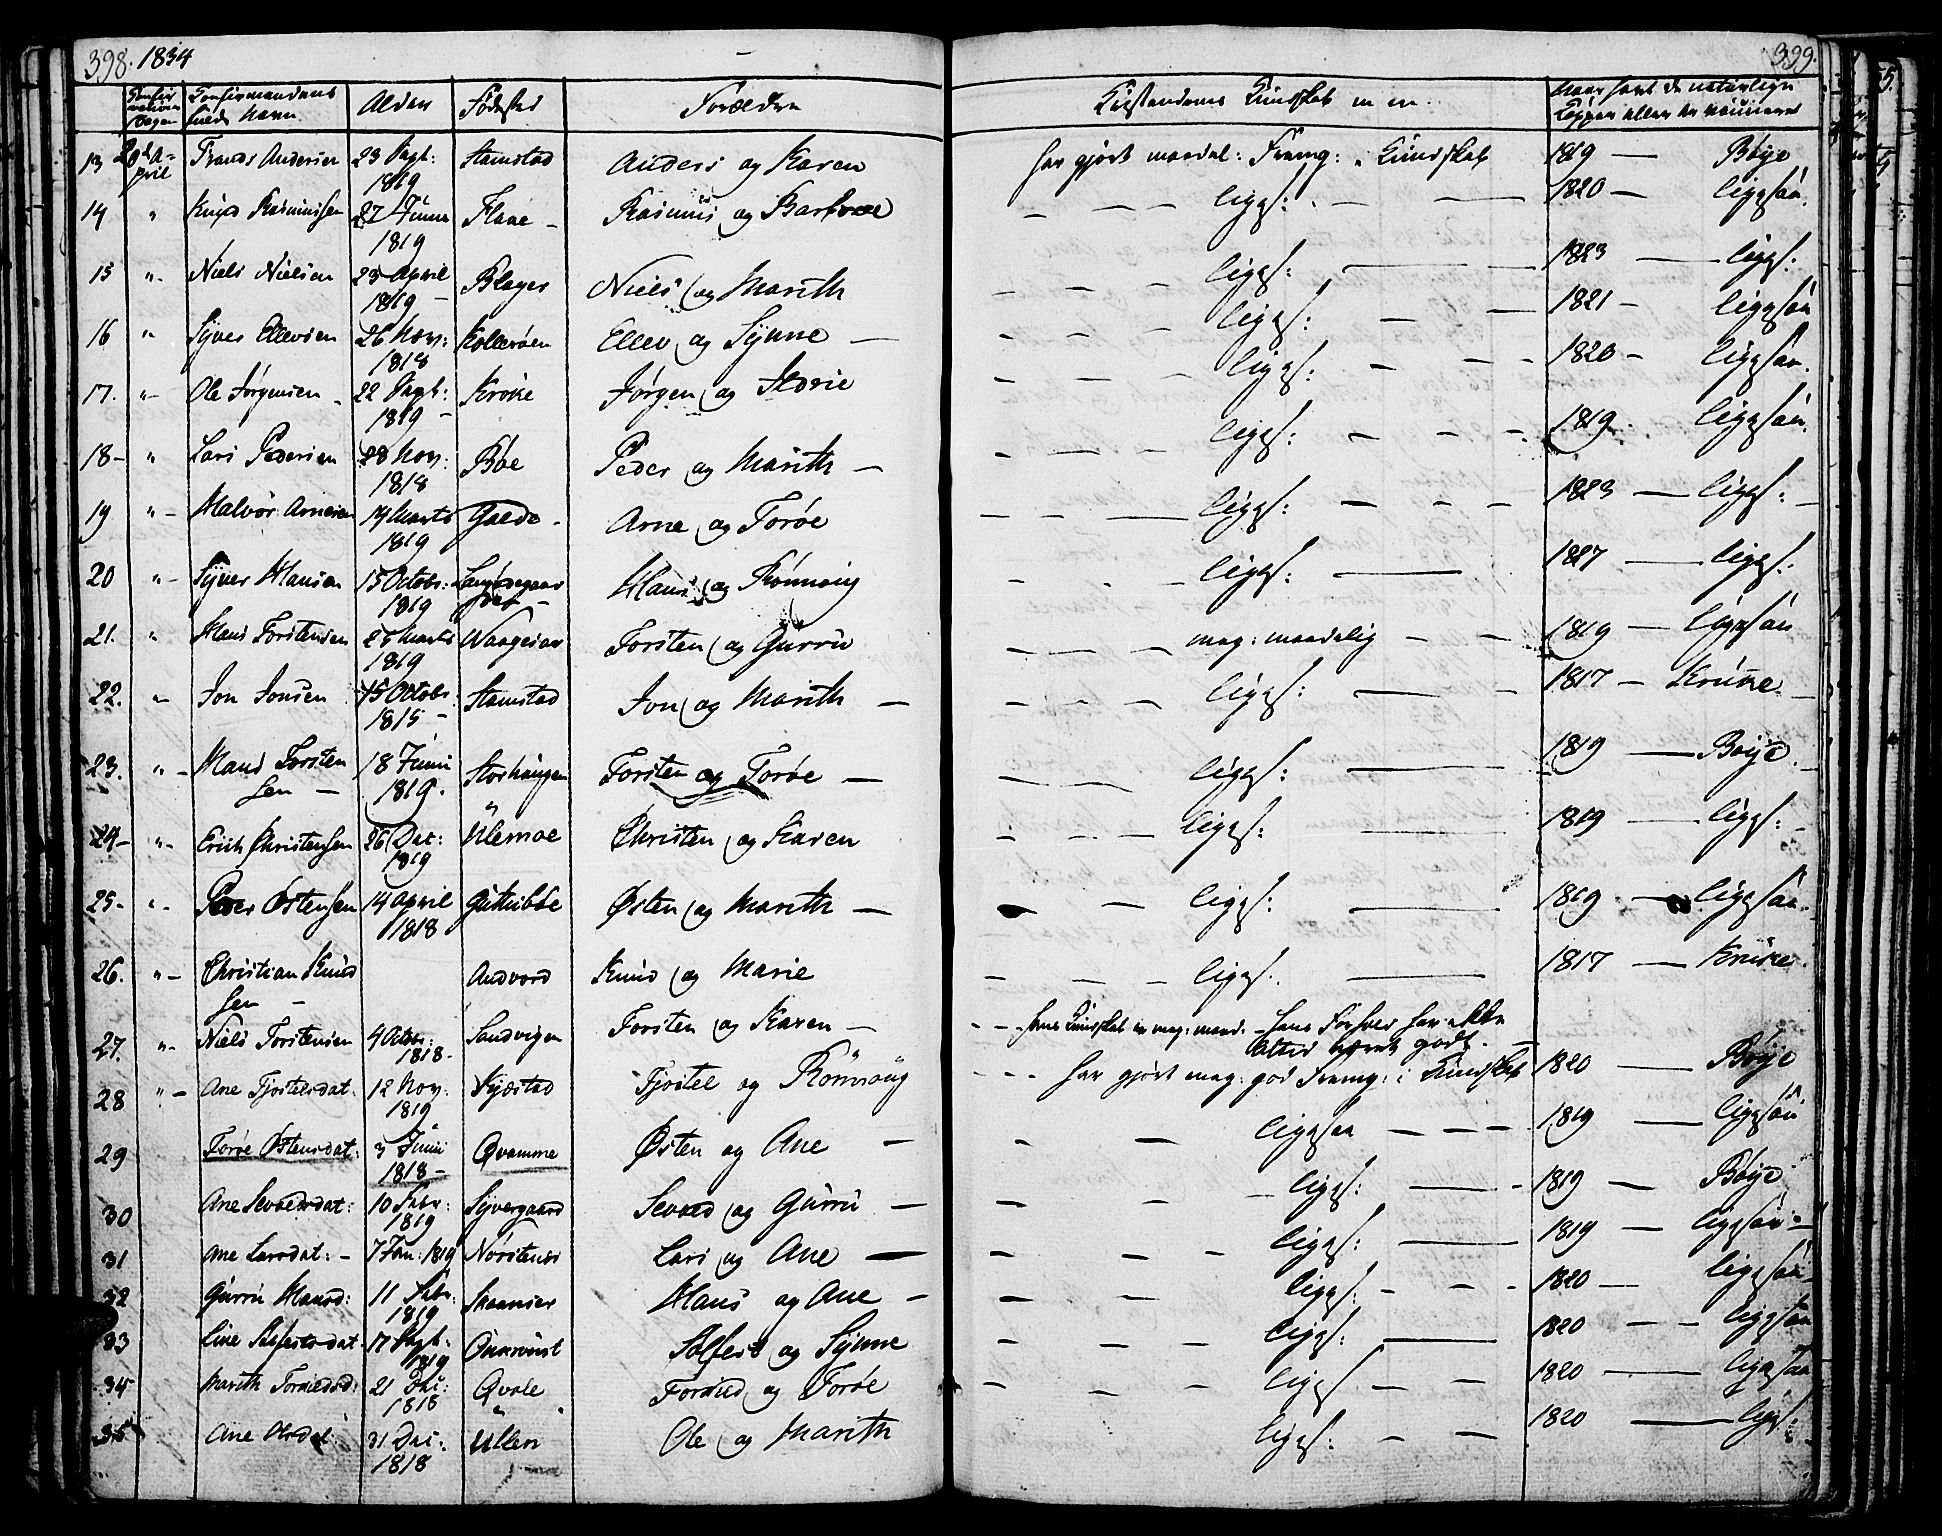 398. 1834
399.
Confir
mations
Dagen Confirmandens
fulde Navn Alder Fødested Forældre Christendoms Kundskab m m. Naar havt de naturlige
Kopper eller er vaccineret
13 20de A-
pril Trands Andersen 23 Sept:
1819 Stamstad Anders og Karen har gjort maadel: Fremg: i Kundskab 1819 — Bøye
14 " Knud Rasmussen 27 Junii
1819 Flaae — Rasmus og Barbroe — — — liges: — — 1820 — ligesaa.
15 " Niels Nielsen 23 April
1819 — Blager Niels og Marith — — — liges: — — 1823 — liges:
16 " Syver Ellevsen 26 Nov:
1818 Kollerøen Ellev og Synne — — — — liges: — — 1821 — ligesaa
17. " Ole Jørgensen — 22 Sept:
1819 — Kroke Jørgen og Marie — — — liges: — — — 1820 — ligesaa.
18 — " Lars Pedersen 28 Nov:
1818 Bøe Peder og Marith — — — — liges: — — — 1819. ligesaa.
19 " — Halvor Arnesen 14 Marts
1819 Gjede — Arne og Torøe — — — liges: — — — 1823 — liges: —
20 " — Syver Hansen 15 Octobr:
1819 Hans og Rønnoug — — — liges: — 1827 — liges:
21. " Hans Torstensen 25 Marts
1819 Torsten og Gurru — — — meg: maadelig — — 1819 — ligesaa
22. " Jon Jonsen 15 Octobr.
1815 — Stamstad Jon og Marith — — — — liges: — — 1817 — Krúke —
23. " — Hans Torsten
sen — 18 Junii
1819. Storhaugen Torsten og Torøe — — — — liges: — 1819 — Bøye.
24 — " — Erich Christensen 26 Dec:
1819 Ulemoe Christen og Karen — — — liges: — 1819 — liges: —
25 — " — Peder Østensen 14 April
1818 Østen og Marith — — — — liges: — 1819 — ligesaa.
26. " — Christian Knud
sen — Andvord Knud og Marie — — — liges. — 1817 — Krúke.
27. " — Niels Torstensen 4 Octobr:
1818 — Sandvigen Torsten og Karen — — — hans Kundskab er meg: maad: — hans Forhold har ikke
altid været godt. —
28 " — Ane Tjostelsdat. 12 Nov.
1819 Kjæstad Tjostel og Rønnoug — — — har gjort meg: god Fremg: i Kundskab 1820 — Bøye
29 Torøe Østensdat: 3 Junii
1818 — Qvamme Østen og Ane — — — ligesaa — — — 1819 — ligesaa
30 Ane Sevaldsdat: 10 Febr:
1819 Syvergaard Sevald og Gurru — — — — liges: — — 1819 — Bøye
31 Ane Larsdat: — 7 Jan: 1819 Nørstenes Lars og Ane — — — — liges: — 1819 — ligesaa —
32 Gurru Hansd: 11 Febr:
1819 Hans og Ane — — — — liges: — — — 1820 — ligesaa —
33 17 Sept:
1819 og Synne — — — liges: — 1820 — — ligesaa
34 Marith Tormodsd: 21 Dec:
1818 Qvale Tormod og Torøe — — — liges: — — 1820 — ligesaa
35 Ane Olsdat 31 Dec:
1818 Ullen Ole og Marith liges: — — 1820 — liges: